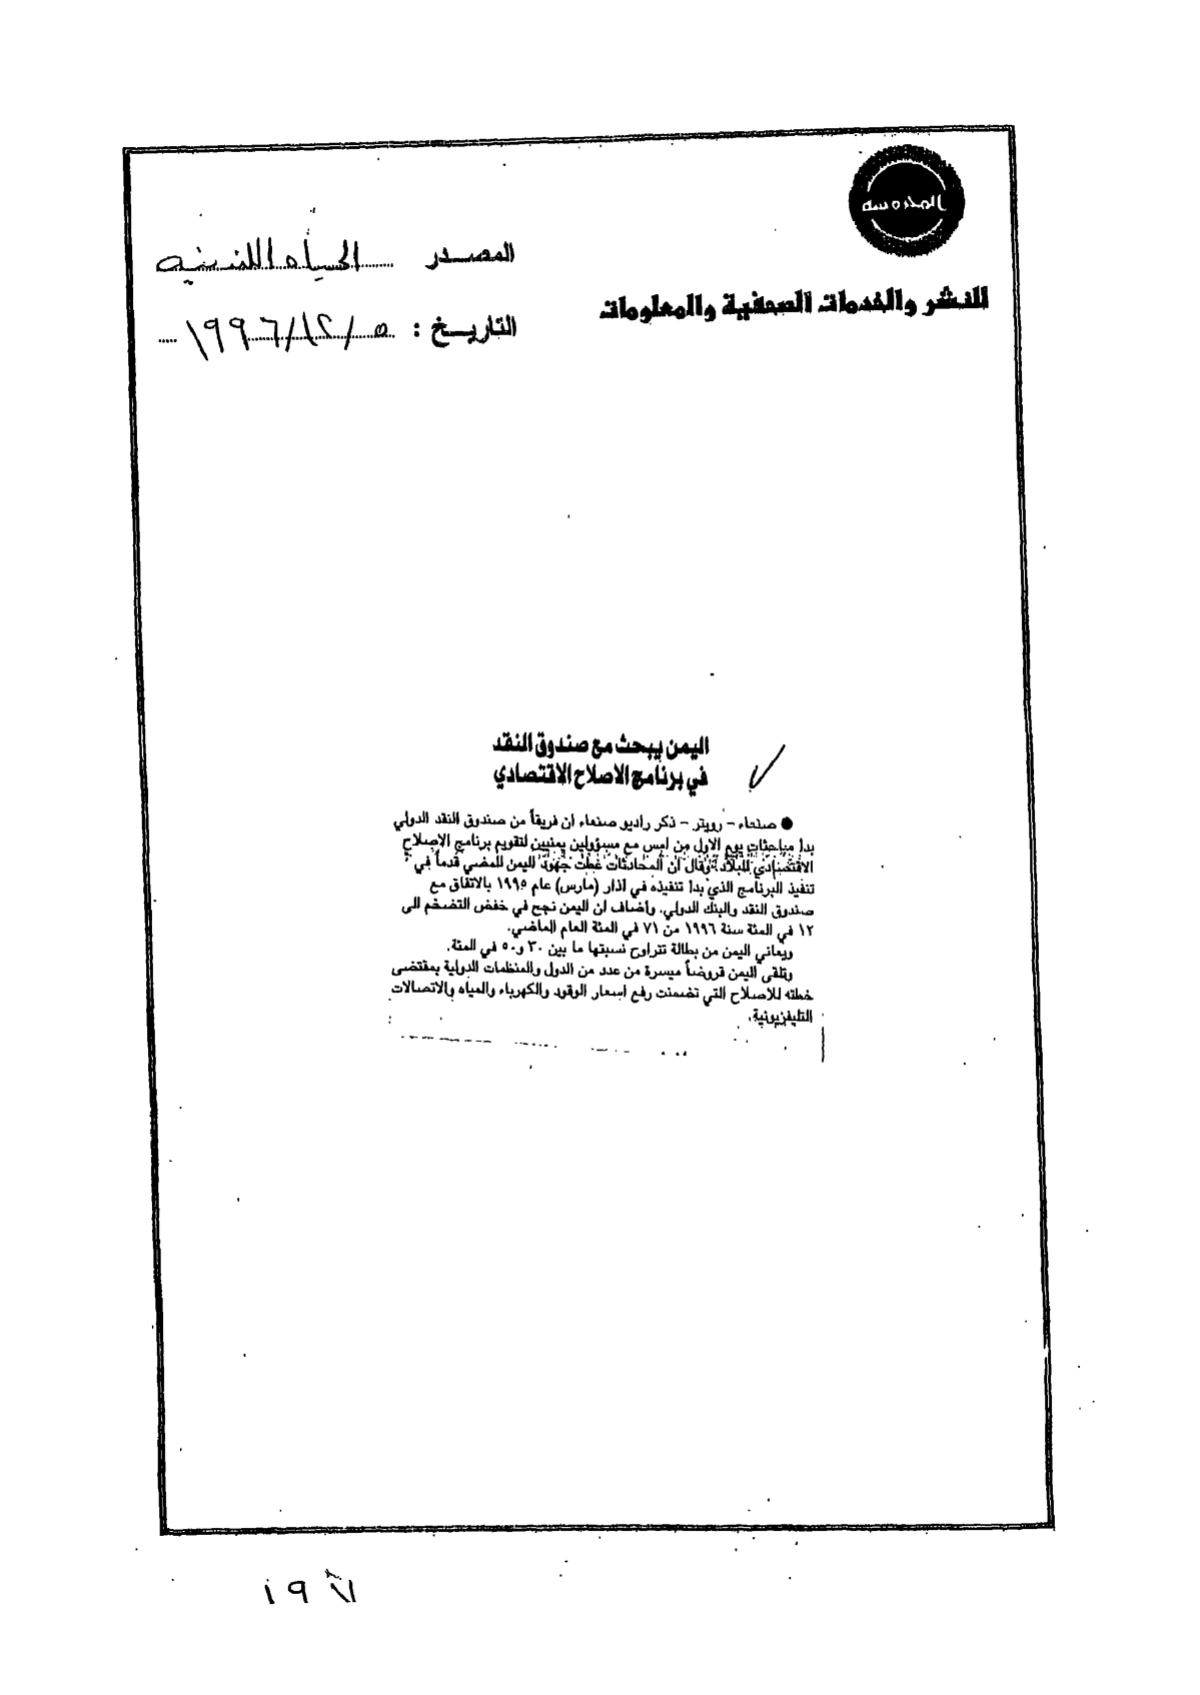 المحروسة
للنشر والخدمات الصحفية والمعلومات
المصدر الحياه اللندنيه
التاريخ : ٥ / ١٢ / ١٩٩٦
اليمن يبحث مع صندوق النقد
في برنامج الاصلاح الاقتصادي
● صنعاء - رويتر - ذكر راديو صنعاء ان فريقاً من صندوق النقد الدولي
بدأ مباحثات يوم الاول من امس مع مسؤولين يمنيين لتقويم برنامج الاصلاح
الاقتصادي للبلاد. وقال ان المحادثات غطت جهود اليمن للمضي قدماً في
تنفيذ البرنامج الذي بدأ تنفيذه في اذار (مارس) عام ١٩٩٥ بالاتفاق مع
صندوق النقد والبنك الدولي. وأضاف ان اليمن نجح في خفض التضخم الى
١٢ في المئة سنة ١٩٩٦ من ٧١ في المئة العام الماضي.
ويعاني اليمن من بطالة تتراوح نسبتها ما بين ٣٠ و٥٠ في المئة.
وتلقى اليمن قروضاً ميسرة من عدد من الدول والمنظمات الدولية بمقتضى
خطته للاصلاح التي تضمنت رفع اسعار الوقود والكهرباء والمياه والاتصالات
التليفزيونية.